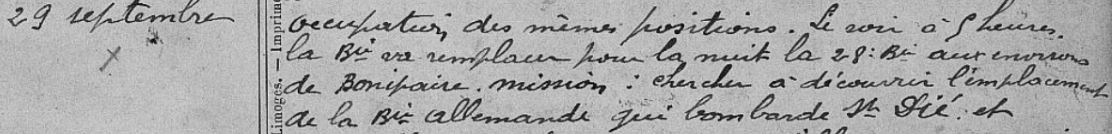 29 septembre
occupation des mêmes positions. Le soir à 5 heures.
la Bie va remplacer pour la nuit la 28e Bie aux environs
de Bonipaire. mission : chercher à découvrir l'emplacement
de la Bie allemande qui bombarde St Dié. et
Limoges. — Imprime